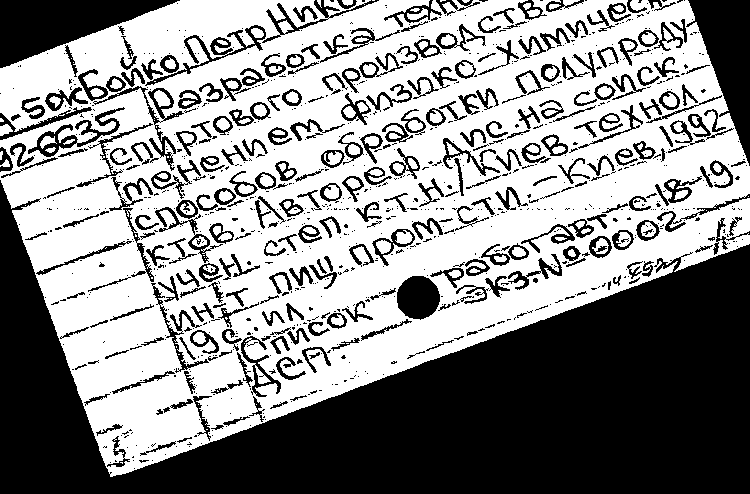 А-50к Бойко, Петр Нико
92-6635 Разработка техно
спиртового производства
менением физико-химическ
способов обработки полупроду-
ктов: Автореф. дис. на соиск.
учен. степ. к.т.н. / Киев. технол.
ин-т пищ. пром-сти. - Киев, 1992
19 с.: ил.
Список работ авт.: с. 18-19.
ДСП. Экз. № 0002
5